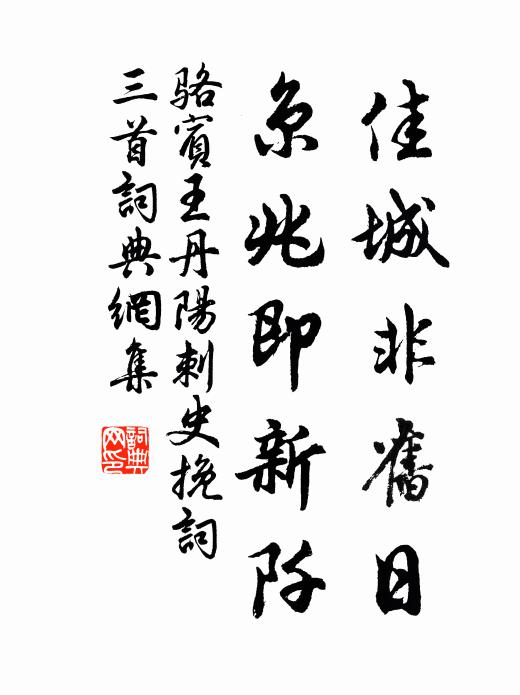 佳城非舊日
京兆即新阡
駱賓王丹陽刺史挽詞
三首詞典網集
詞典
网印